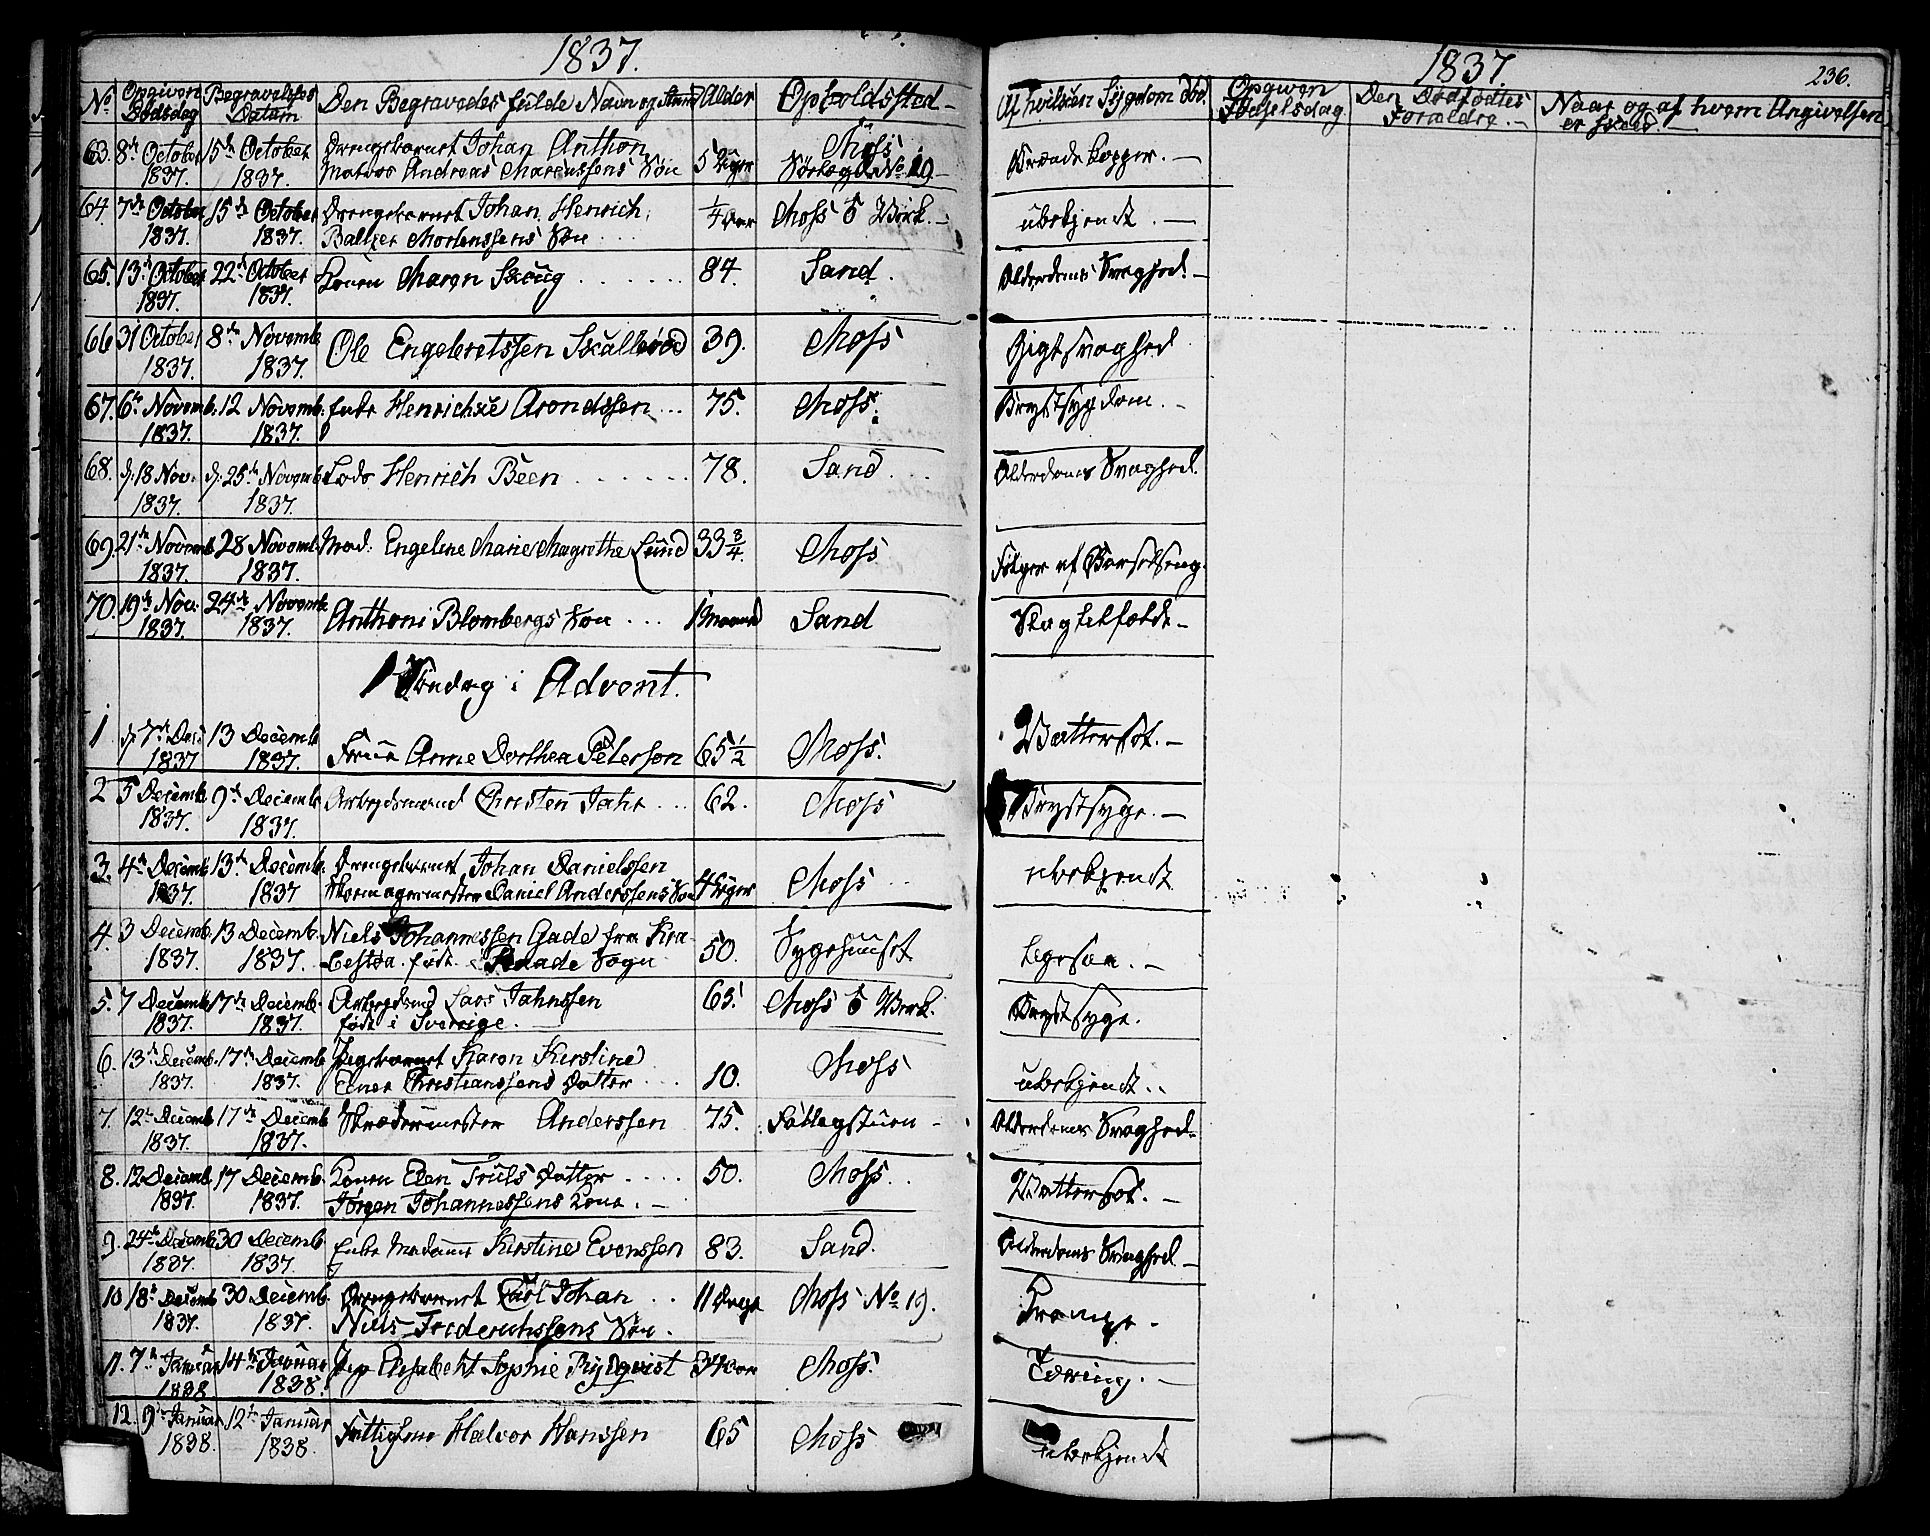 1837.
No Opgiven Dødsdag Begravelses Datum Den Begravedes fulde Navn og Stand Alder Opholdssted
63. 8de October 15de October Drengebarnet Johan Anthon 5 Uger Moss
1837. 1837. Matros Andreas Marcussens Søn No 19
64 7de October 15de October Drengebarnet Johan Henrich, 1/4 Aar Moss o Værk.
1837. 1837. Baltzer Mortenssens Søn
65. 13de October 22de October Konen Maren Skoug 84. Sand.
1837. 1837.
66 31 October 8de Novemb 39. Moss
1837. 1837. Ole Engebretssen Skallerød
67. 6te Novemb. 12 Novemb. Enke Henrichæ Arondssen 75. Moss.
1837. 1837.
68. d. 18 Nov. d. 25de Novemb Lods Henrich Been 78. Sand
1837. 1837.
69. 21de Novemb. 28 Novemb. Mad. Engeline Marie Magrethe Lund 33 3/4. Moss
1837. 1837.
70. 19de Nov. 24de Novemb Anthoni Blombergs Søn 1 Maaned Sand
1837. 1837.
1 Søndag i Advent.
1 d. 7de Dec. 13 Decemb Frue Anne Dorthea Peterson 65 1/2 Moss.
1837 1837.
2 5 Decemb 9de Decemb Arbeydsmand Christen Jahr 62. Moss
1837. 1837.
3. 4de Decemb 13de Decemb. Drengebarnet Johan Danielssen
1837. 1837 Skomagermester Daniel Anderssens Søn 4 Uger Moss
4. 3 Decemb. 13 Decemb. Niels Johannessen Gade fra 50. Sygehuuset
1837. 1837. født Raade Sogn
5. 7 Decemb 17de Decemb. Arbeydsmd Lars Jahnssen 65. Moss o Værk.
1837. 1837. født i Sverrige.
6. 13de Decemb. 17de Decemb Pigebarnet Karen Kirstine Moss
1837. 1837. Christianssens Datter 10.
7. 12te Decemb 17de Decemb Skrædermester Anderssen 75. Fattigstuen
1837. 1837.
8. 12 Decemb. 17 Decemb. Konen Elen Truls Datter 50. Moss.
1837. 1837. Jørgen Johannessens Kone.
9. 24de Decemb. 30 Decemb. Enke Madame Kirstine Evenssen 83. Sand.
1837. 1837.
10 18de Decemb 30 Decemb. Drengebarnet Carl Johan 11 Dage Moss No 19.
1837. 1837. Niels Frederichssens Søn.
11. 7de Januar 14de Januar Jfr Elisabeht Sophie Rydqvist 34 Aar Moss.
1838. 1838.
12. 9de Januar 12te Januar Halvor Hanssen 65 Moss
1838. 1838.
1837. 236.
Af hvilken Sygdom død. Opgiven Fødselsdag Den Dødfødtes Forældre. Naar og af hvem Angivelsen
er skeed.
Kopper.
ubekjendt.
Alderdoms Svaghed.
Gigtsvaghed
Brystsygdom.
Alderdoms Svaghed.
Følger af Barselseng.
Slagtilfælde
Vattersot.
Brystsyge.
ubekjendt
Brystsyge.
ubekjendt.
Alderdoms Svaghed.
Vattersot.
Alderdoms Svaghed.
Krampe.
Tæring.
ubekjendt